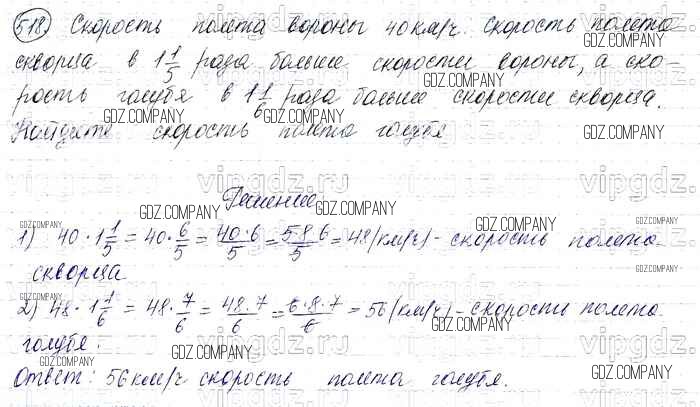 518. Скорость полета вороны 40 км/ч. Скорость полета
скворца в 1 1/5 раза больше скорости вороны, а ско-
рость голубя в 1 1/6 раза больше скорости скворца.
Найдите скорость полета голубя
Решение
1) 40 · 1 1/5 = 40 · 6/5 = 40·6/5 = 5·8·6/5 = 48 (км/ч) - скорость полета
скворца
2) 48 · 1 1/6 = 48 · 7/6 = 48·7/6 = 6·8·7/6 = 56 (км/ч) - скорости полета
голубя.
Ответ: 56 км/ч скорость полета голубя.
GDZ.COMPANY
vipgdz.ru